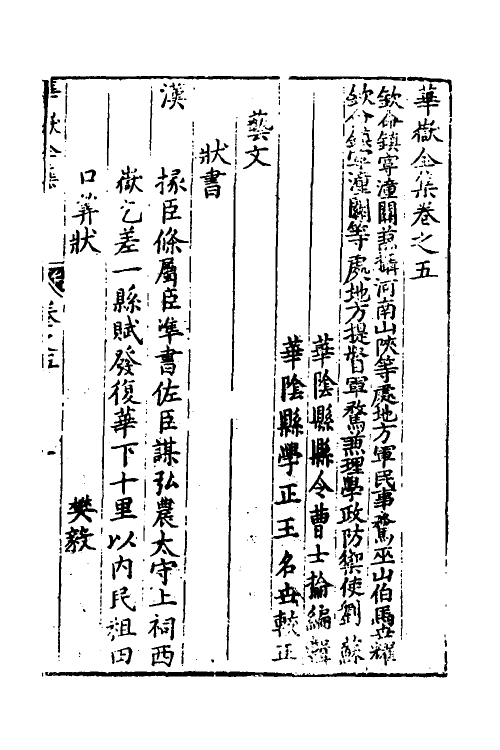 華嶽全集卷之五
欽命鎮守潼關兼轄河南山陝等處地方軍民事務巫山伯馬世耀
欽命鎮守潼關等處地方提督軍務兼理學政防禦使劉蘇
華陰縣縣令曹士掄編輯
華陰縣學正王名世較正
藝文
狀書
漢
掾臣條屬臣準書佐臣謀弘農太守上祠西
嶽乞差一縣賦發復華下十里以內民租田
口筭狀
樊毅
華嶽全集
卷之五
一